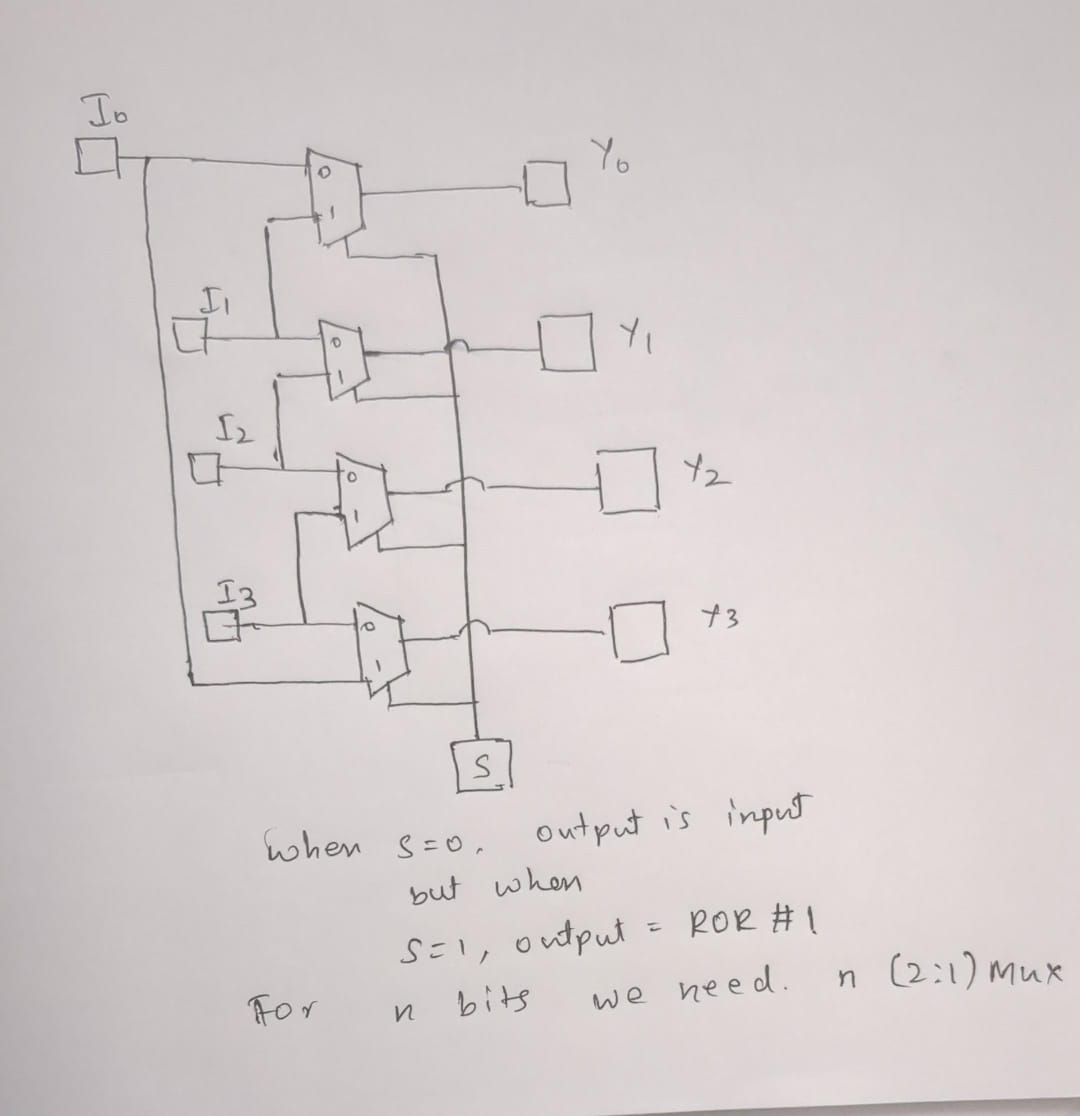 I0
Y0
0
1
I1
Y1
0
1
I2
Y2
0
1
I3
Y3
0
1
S
When S=0, output is input
but when
S=1, output = ROR #1
For n bits we need. n (2:1) Mux